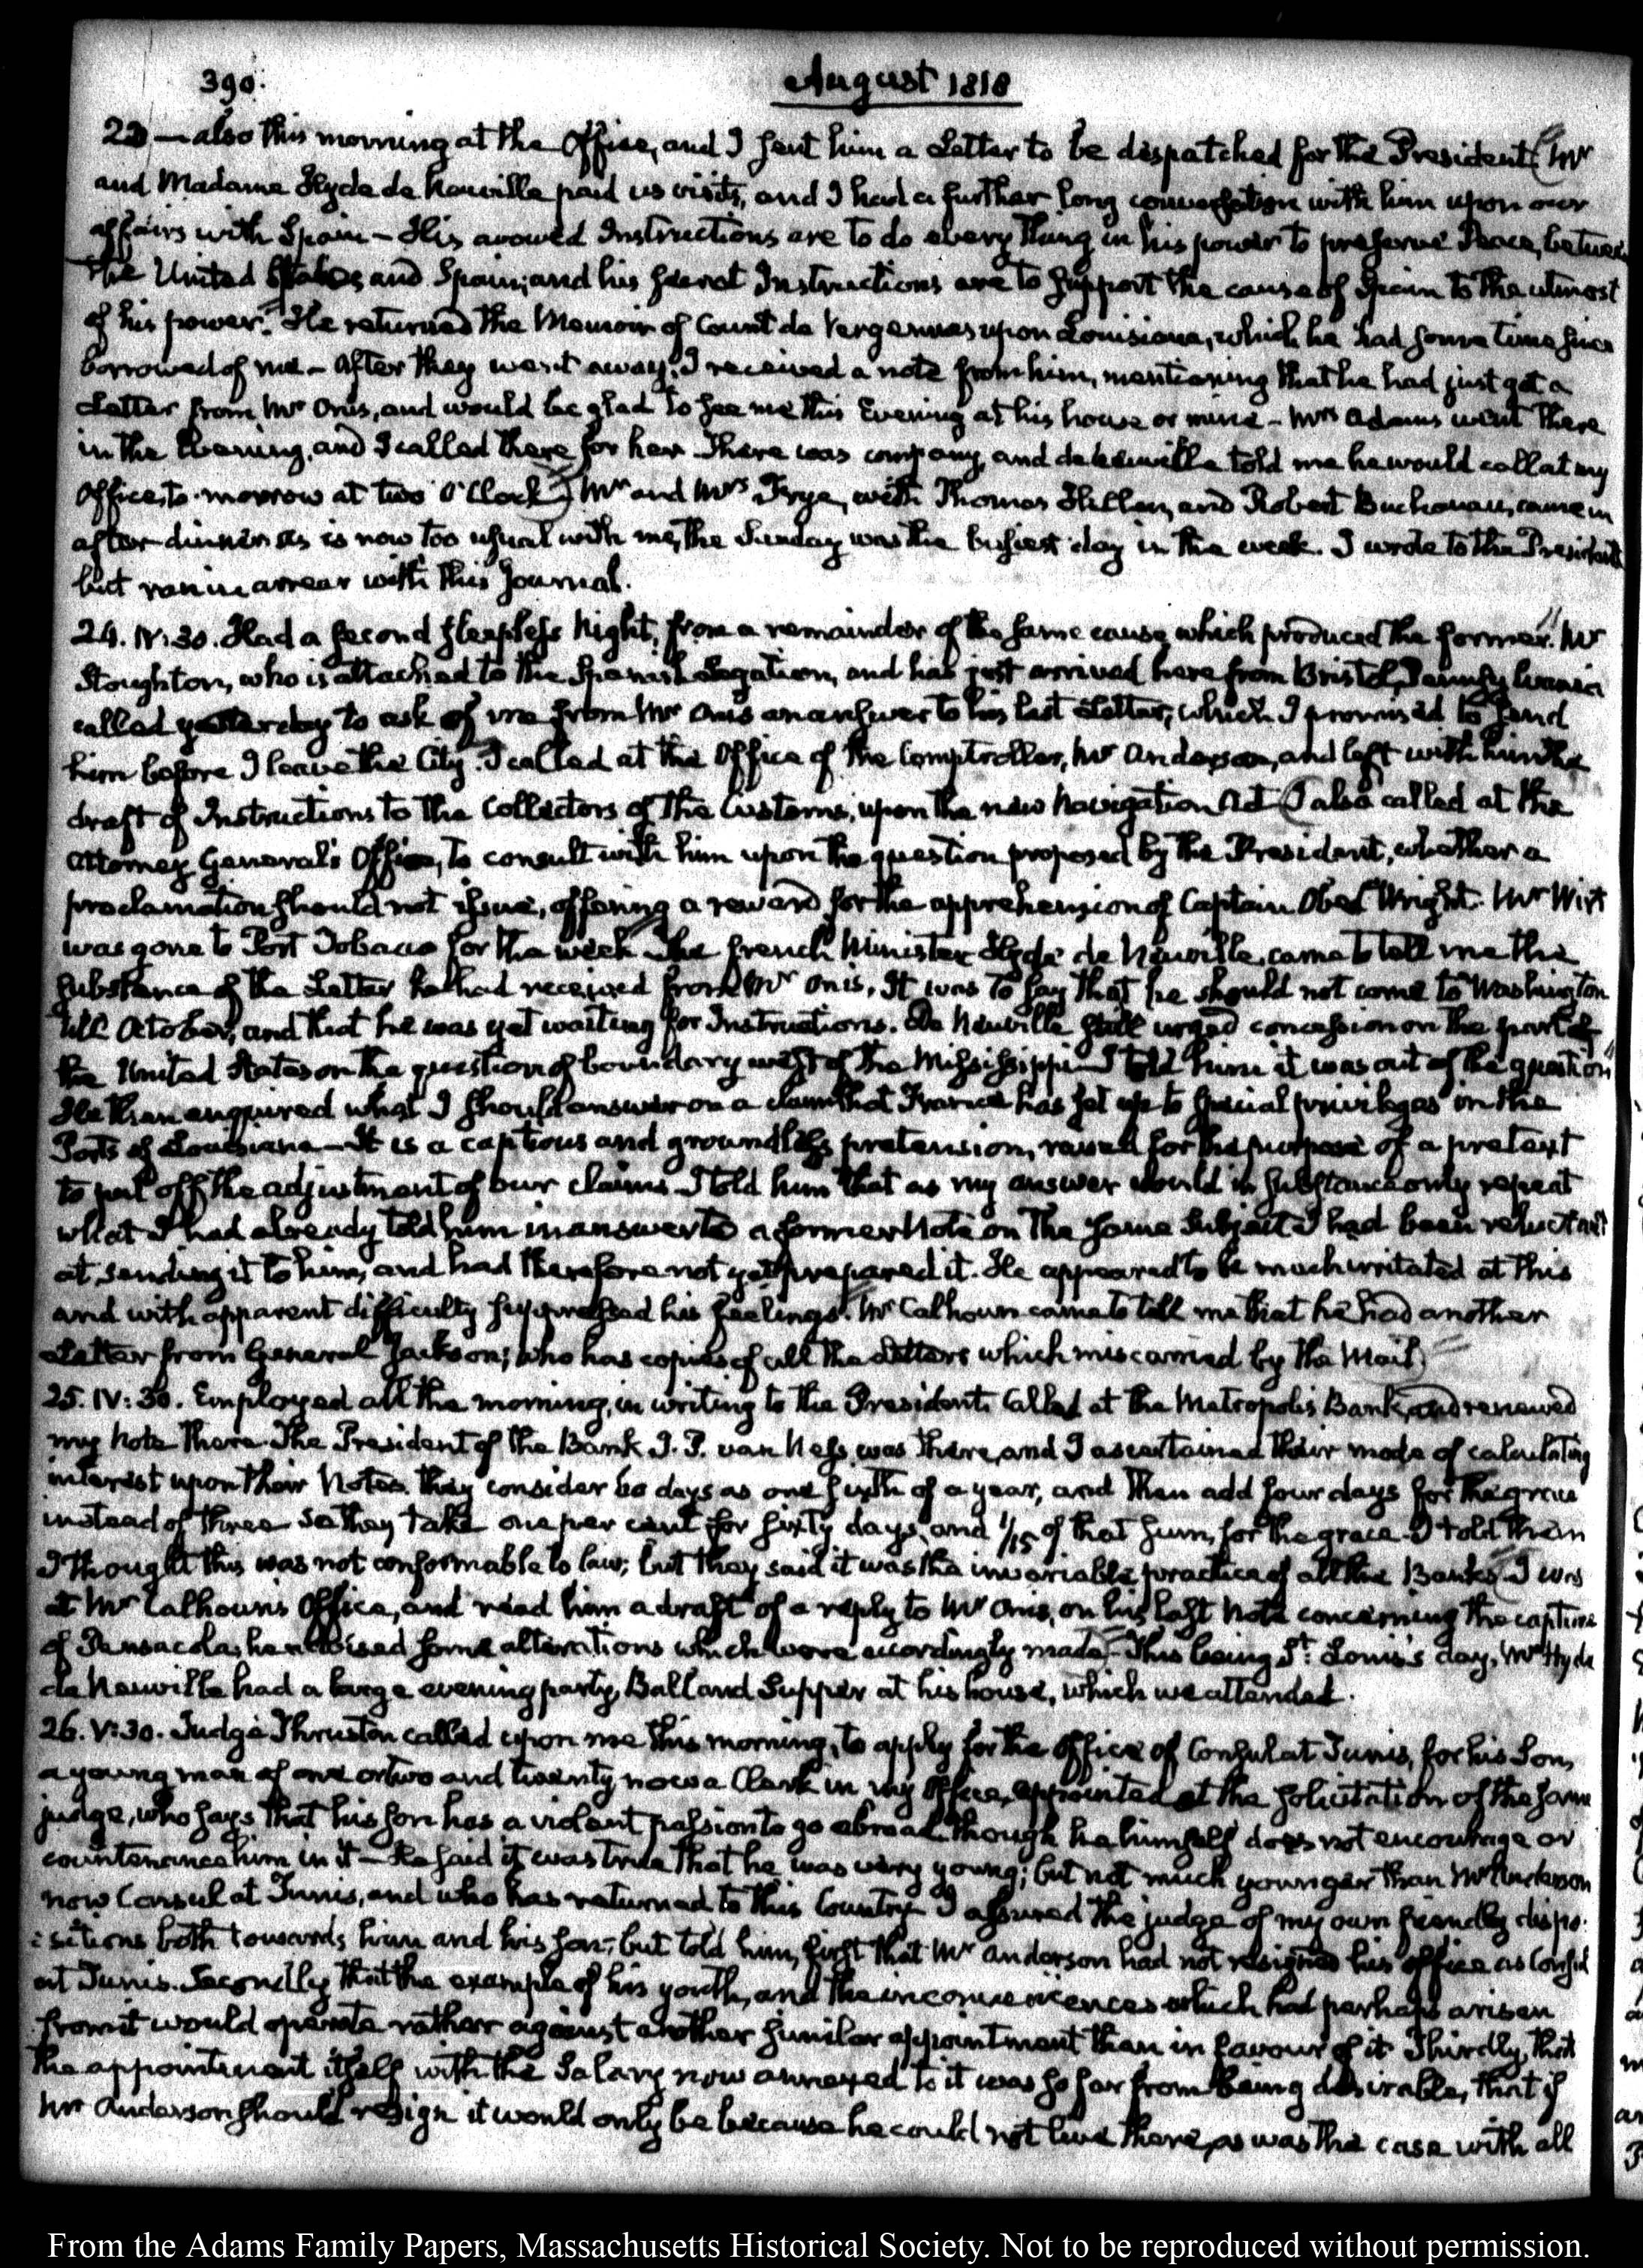 390.
August 1818
23 — also this morning at the Office, and I sent him a Letter to be dispatched for the President. (Mr
and Madame Hyde de Neuville paid us visits, and I had a further long conversation with him upon our
affairs with Spain — His avowed Instructions are to do every thing in his power to preserve Peace, between
the United States and Spain; and his secret Instructions are to support the cause of Spain to the utmost
of his power. He returned the Memoir of Count de Vergennes upon Louisiana, which he had some time since
borrowed of me — After they went away, I received a note from him, mentioning that he had just got a
Letter from Mr Onis, and would be glad to see me this Evening at his house or mine — Mrs Adams went there
in the Evening, and I called there for her. There was company, and de Neuville told me he would call at my
Office, to-morrow at two O'Clock.) Mr and Mrs Frye, with Thomas Hellen, and Robert Buchanan, came in
after dinner. As is now too usual with me, the Sunday was the busiest day in the week. I wrote to the President
but ran in arrear with this Journal.
24. IV:30. Had a second sleepless Night, from a remainder of the same cause which produced the former. Mr
Stoughton, who is attached to the Spanish Legation, and has just arrived here from Bristol, Pennsylvania
called yesterday to ask of me from Mr Onis an answer to his last Letter, which I promised to send
him before I leave the City. I called at the Office of the Comptroller, Mr Anderson, and left with him the
draft of Instructions to the Collectors of the Customs, upon the new Navigation Act (I also called at the
Attorney General's Office, to consult with him upon the question proposed by the President, whether a
proclamation should not issue, offering a reward for the apprehension of Captain Obed Wright. Mr Wirt
was gone to Port Tobacco for the week. The French Minister Hyde de Neuville, came to tell me the
substance of the Letter he had received from Mr Onis. It was to say that he should not come to Washington
till October, and that he was yet waiting for Instructions. De Neuville still urged concession on the part of
the United States on the question of boundary west of the Mississippi — I told him it was out of the question
He then enquired what I should answer on a claim that France has set up to special privileges in the
Ports of Louisiana — It is a captious and groundless pretension, raised for the purpose of a pretext
to put off the adjustment of our claims. I told him that as my answer would in substance only repeat
what I had already told him in answer to a former Note on the same Subject I had been reluctant
at sending it to him, and had therefore not yet prepared it. He appeared to be much irritated at this
and with apparent difficulty suppressed his feelings. Mr Calhoun came to tell me that he had another
Letter from General Jackson; who has copies of all the Letters which miscarried by the Mail)
25. IV:30. Employed all the morning, in writing to the President. Called at the Metropolis Bank, and renewed
my Note there. The President of the Bank J. P. van Ness was there, and I ascertained their mode of calculating
interest upon their Notes. They consider 60 days as one sixth of a year, and then add four days for the grace
instead of three. So they take one per cent for sixty days, and 1/15 of that sum, for the grace. I told them
I thought this was not conformable to law; but they said it was the invariable practice of all the Banks. I was
at Mr Calhoun's Office, and read him a draft of a reply to Mr Onis, on his last Note concerning the capture
of Pensacola; he advised some alterations which were accordingly made. — This being St. Louis's day, Mr Hyde
de Neuville had a large evening party, Ball and Supper at his house, which we attended.
26. V:30. Judge Thruston called upon me this morning, to apply for the Office of Consul at Tunis, for his Son,
a young man of one or two and twenty now a Clerk in my Office, appointed at the solicitation of the same
judge, who says that his son has a violent passion to go abroad though he himself does not encourage or
countenance him in it — He said it was true that he was very young; but not much younger than Mr Anderson
now Consul at Tunis, and who has returned to this Country. I assured the judge of my own friendly dispo-
sitions both towards him and his son; but told him, first that Mr Anderson had not resigned his office as Consul
at Tunis. Secondly that the example of his youth, and the inconveniences which had perhaps arisen
from it would operate rather against another similar appointment than in favour of it. Thirdly, that
the appointment itself with the Salary now annexed to it was so far from being desirable, that if
Mr Anderson should resign it would only be because he could not live there, as was the case with all
From the Adams Family Papers, Massachusetts Historical Society. Not to be reproduced without permission.